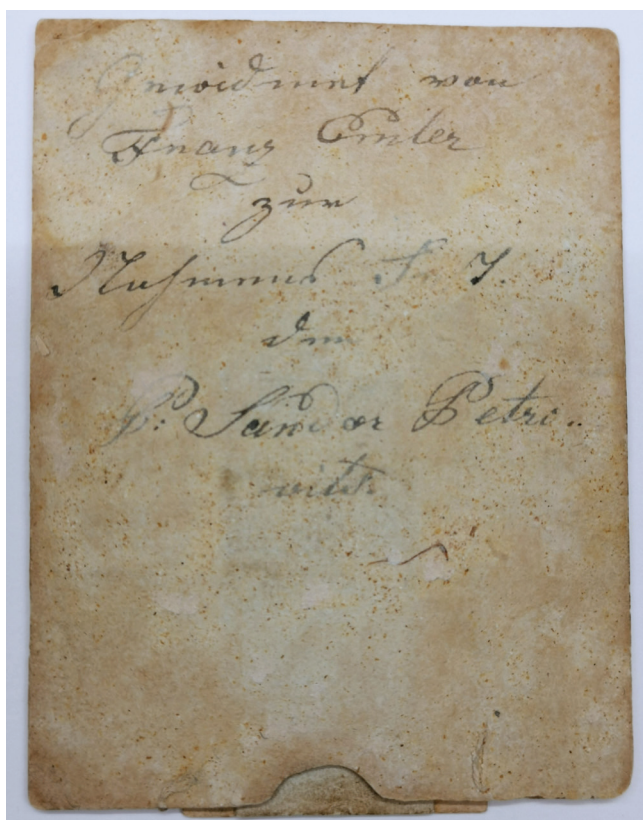 Gewidmet von
Franz Emler
zur
Nahmens
dem
P: Sandor Petro-
vits